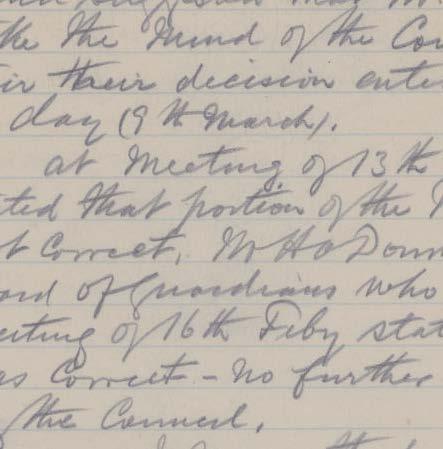 the mind of the Cou
their decision ente
day (9th March).
at Meeting of 13th
ted that portion of the
t correct, Mr H O Donn
ard of Guardians who
eeting of 16th Feby stat
as correct - no further
the Council.